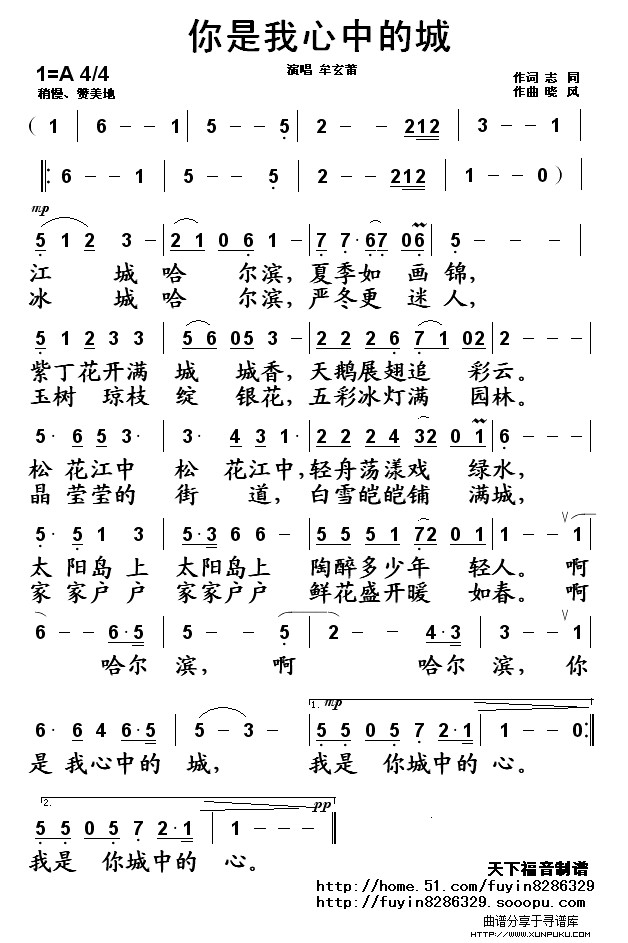 你是我心中的城
1=A 4/4 演唱 牟玄莆 作词 志 同
稍慢、赞美地 作曲 晓 风
( 1 | 6 - - 1 | 5 - - 5 | 2 - - 212 | 3 - - 1
‖: 6 - - 1 | 5 - - 5 | 2 - - 212 | 1 - - 0 )
mp
5 1 2 3 - | 2 1 0 6 1 | 7 7· 67 06 | 5 - - - |
江 城 哈 尔滨，夏季如 画锦，
冰 城 哈 尔滨，严冬更 迷人，
5 1 2 3 3 | 5 6 05 3 | 2 2 2 6 7 1 02 | 2 - - - |
紫丁花开满 城 城香，天鹅展翅追 彩云。
玉树 琼枝 绽 银花，五彩冰灯满 园林。
5· 6 5 3· | 3· 4 3 1· | 2 2 2 4 32 0 1 | 6 - - - |
松 花江中 松 花江中，轻舟荡漾戏 绿水，
晶 莹莹的 街 道，白雪皑皑铺 满城，
5· 5 1 3 | 5·3 6 6 - | 5 5 5 1 72 0 1 | 1 - - 1 |
太 阳岛 上 太阳岛上 陶醉多少年 轻人。啊
家 家户 户 家家户户 鲜花盛开暖 如春。啊
6 - - 6·5 | 5 - - 5 | 2 - - 4·3 | 3 - - 1 |
哈尔 滨， 啊 哈尔 滨，你
1. mp
6· 6 4 6·5 | 5 - 3 - | 5 5 0 5 7 2·1 | 1 - - 0 :‖
是 我心中的 城， 我是 你城中的 心。
2. pp
5 5 0 5 7 2·1 | 1 - - - ‖
我是 你城中的 心。
天下福音制谱
http://home.51.com/fuyin8286329
http://fuyin8286329.sooopu.com
曲谱分享于寻谱库
HTTP://WWW.XUNPUKU.COM